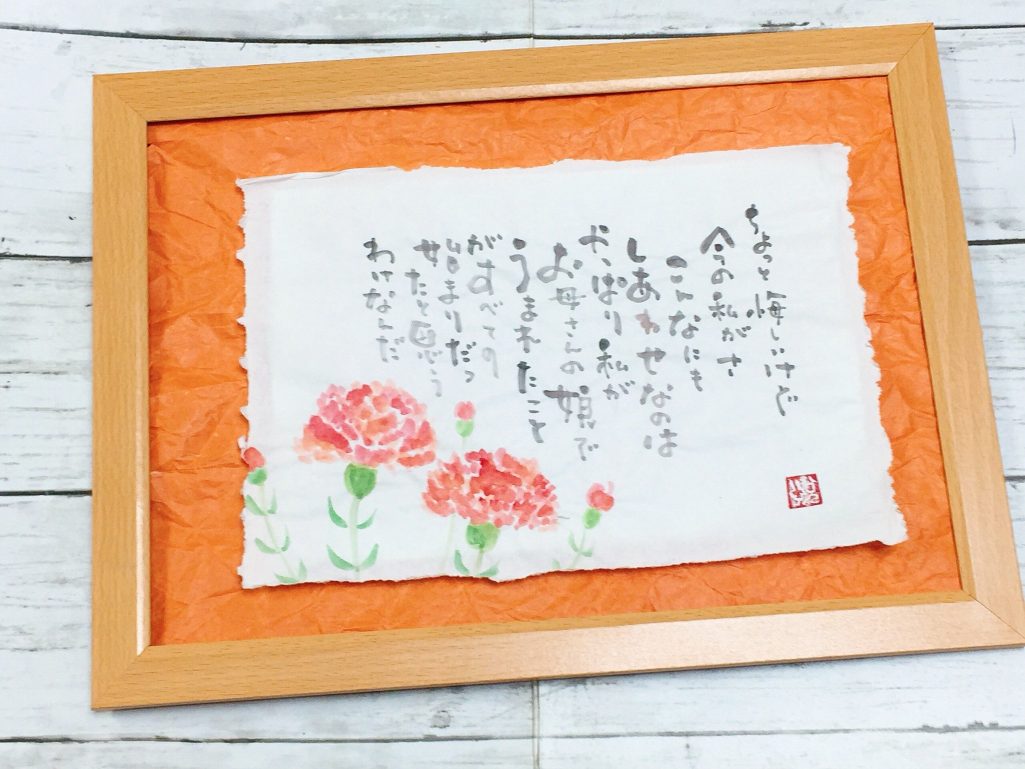 ちょっと悔しいけど
今の私がさ
こんなにも
しあわせなのは
やっぱり私が
お母さんの娘で
うまれたこと
がすべての
始まりだっ
たと思う
わけなんだ